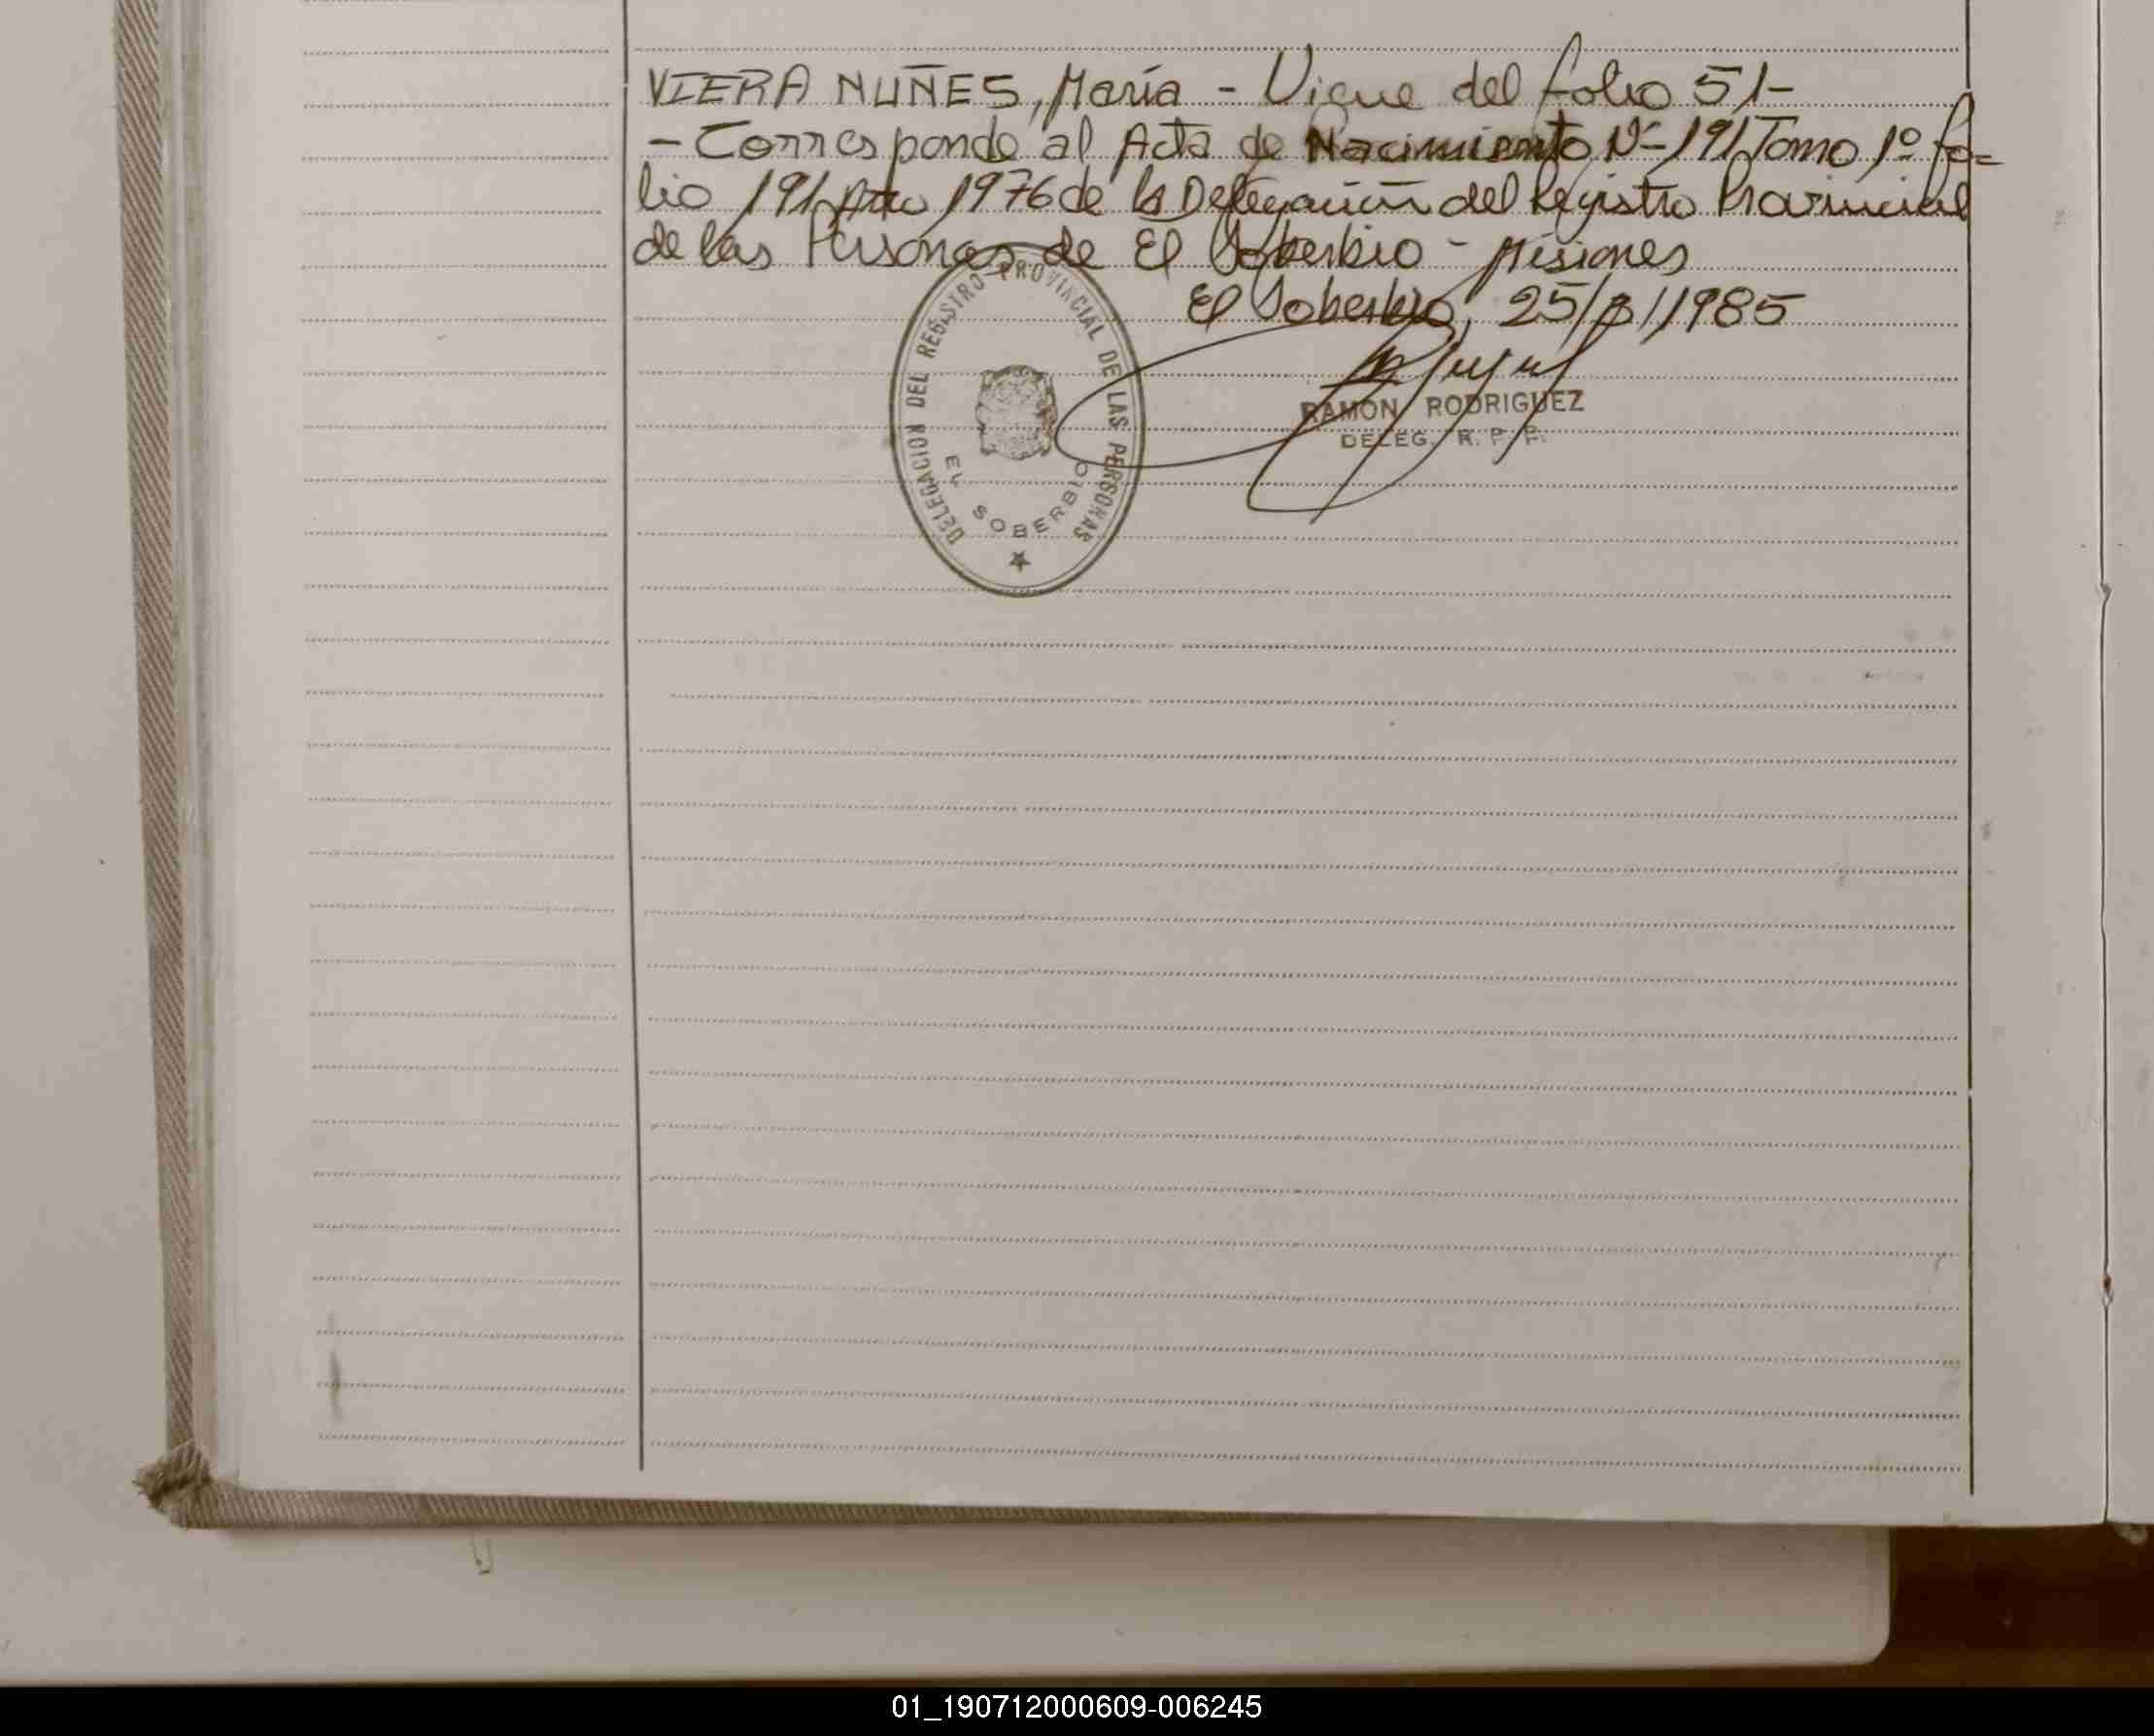 VIERA NUÑES, María - Viene del folio 51-
- Corresponde al Acta de Nacimiento Nº 191 Tomo 1º fo=
lio 191 Año 1976 de la Delegación del Registro Provincial
de las Personas de El Soberbio - Misiones
El Soberbio, 25/ /1985
DELEGACION DEL REGISTRO PROVINCIAL DE LAS PERSONAS
EL SOBERBIO
RAMON RODRIGUEZ
DELEG. R. P. P.
01_190712000609-006245